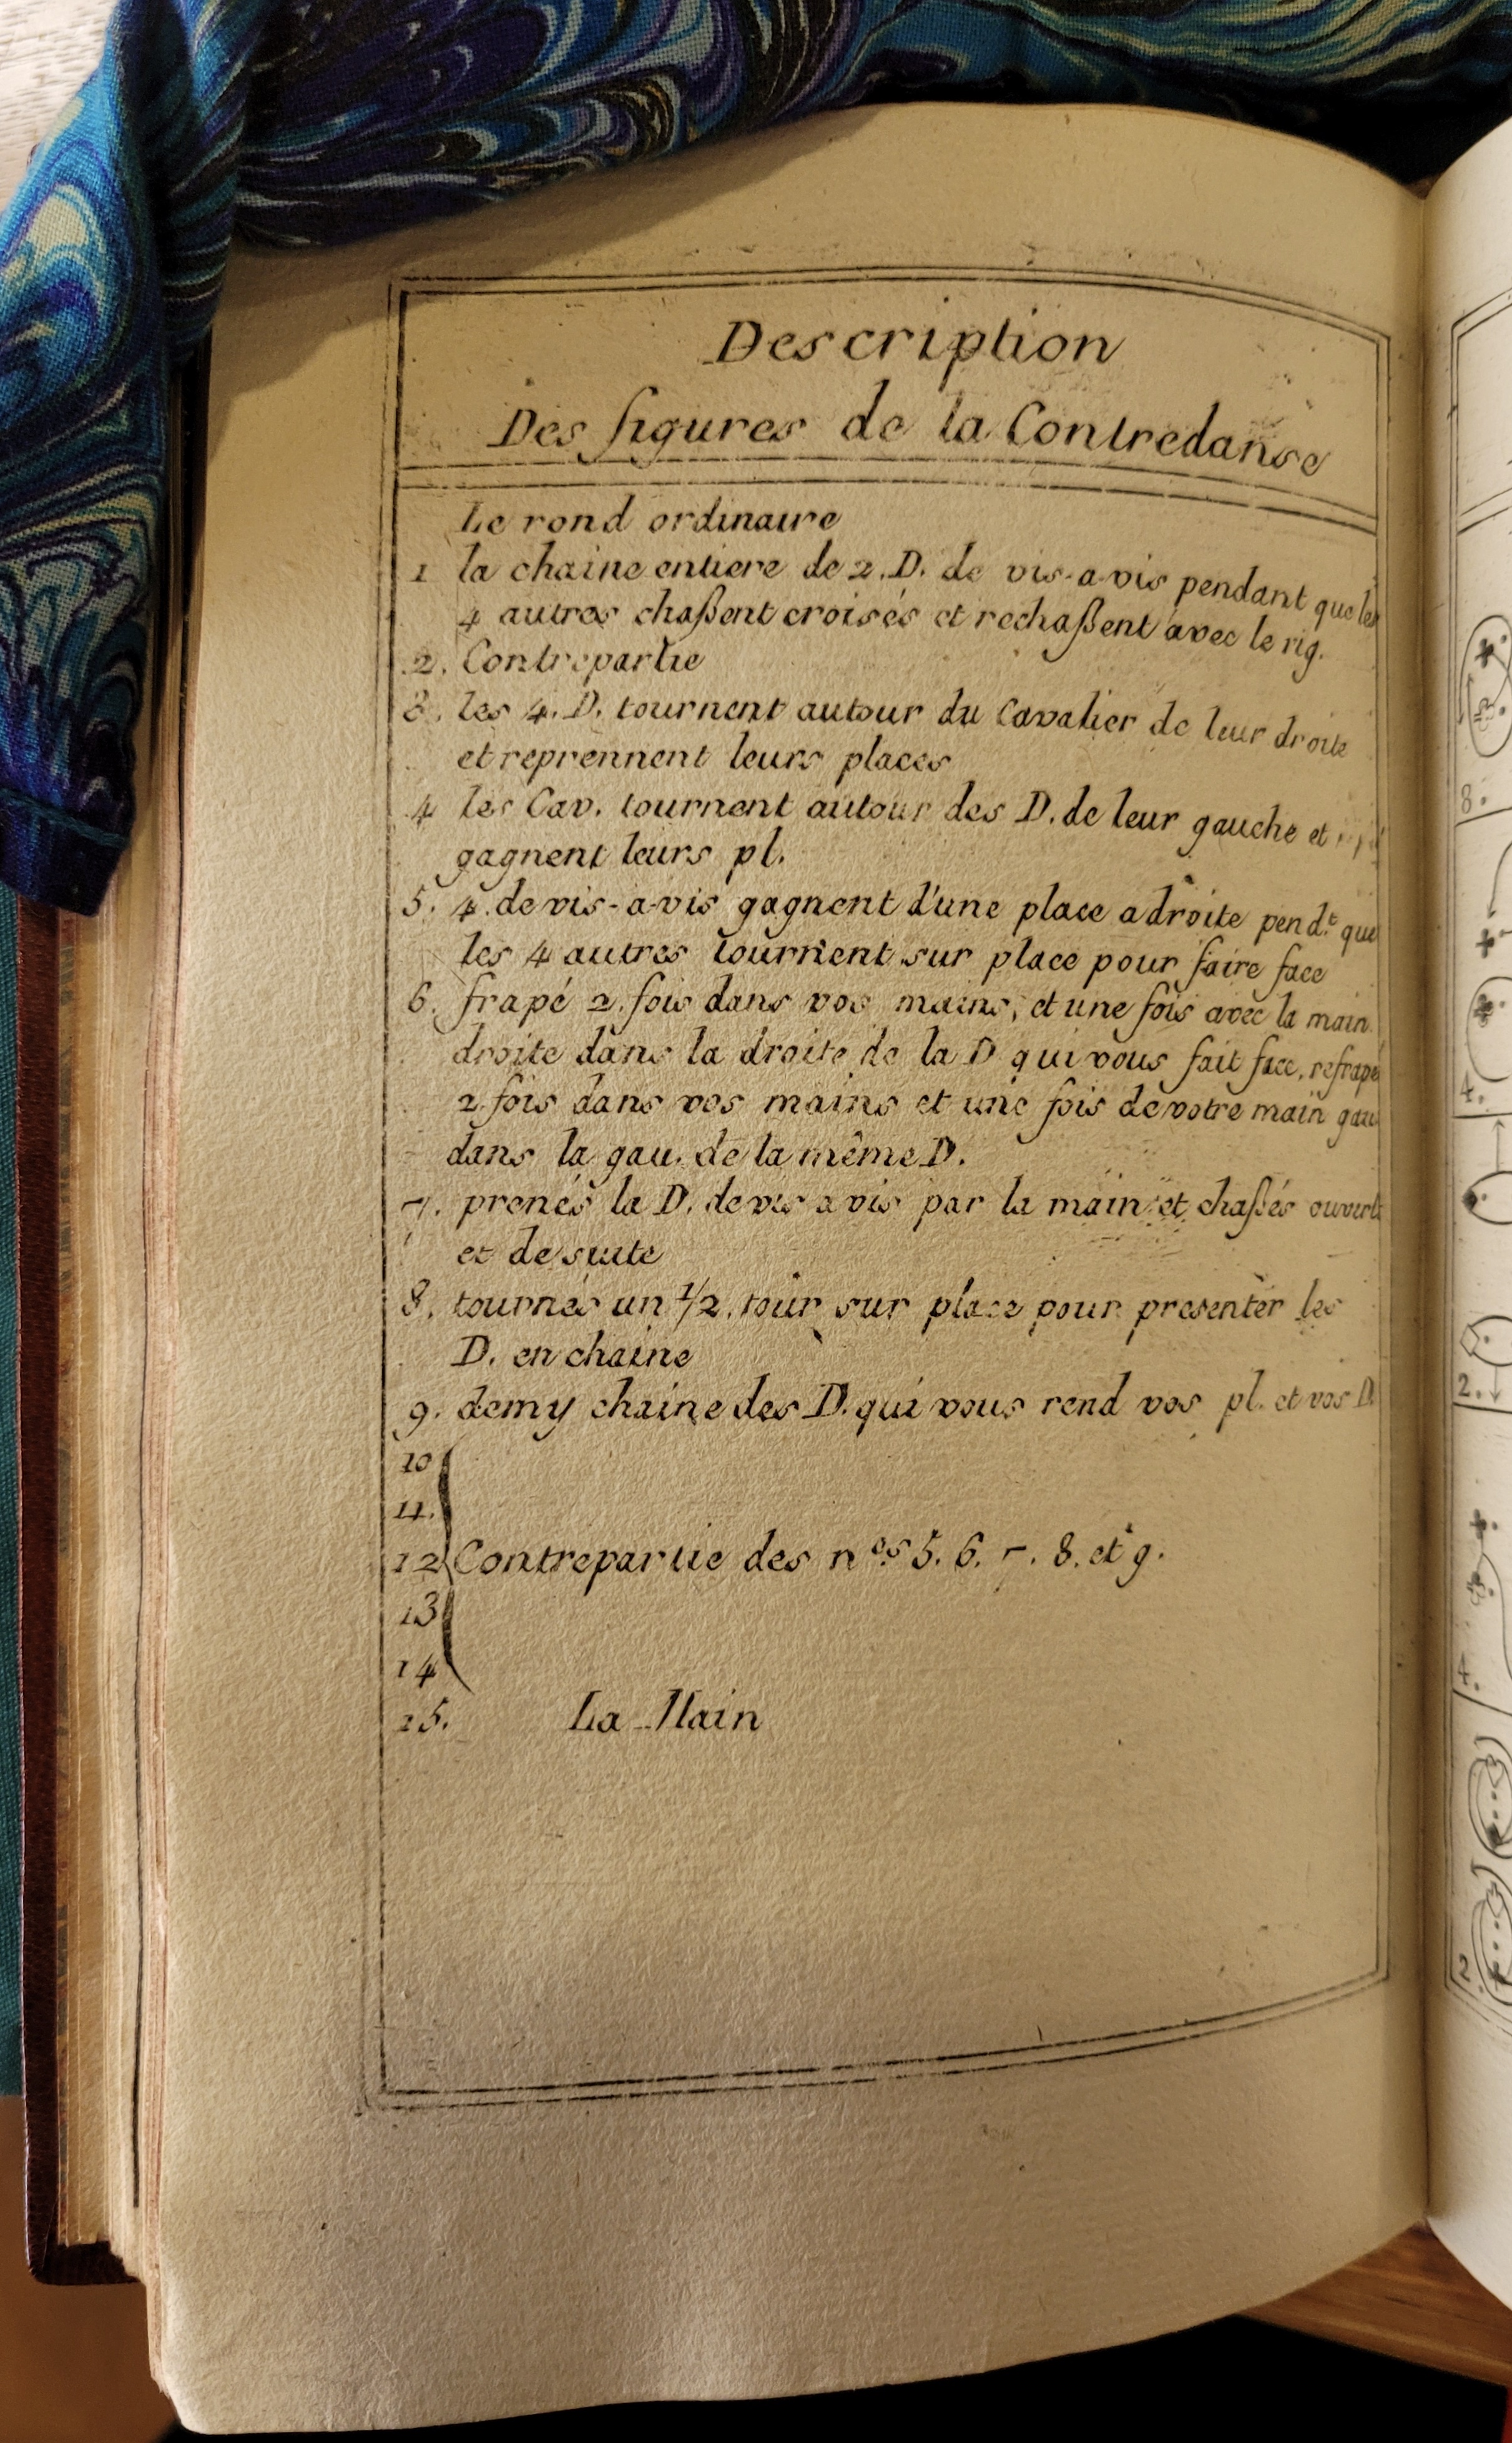 Description
Des figures de la Contredanse
Le rond ordinaire
1 la chaine entiere de 2. D. de vis-a-vis pendant que les
4 autres chaßent croisés et rechaßent avec le rig.
2. Contrepartie
3. les 4. D. tournent autour du Cavalier de leur droite
et reprennent leurs places
4 les Cav. tournent autour des D. de leur gauche et
gagnent leurs pl.
5. 4. de vis-a-vis gagnent d'une place a droite pend.t que
les 4 autres tournent sur place pour faire face
6. frapé 2. fois dans vos mains, et une fois avec la main
droite dans la droite de la D qui vous fait face, refrapé
2. fois dans vos mains et une fois de votre main gau
dans la gau. de la même D.
7. prenés la D. de vis a vis par la main et chaßés ouverts
et de suite
8. tournés un 1/2. tour sur place pour presenter les
D. en chaine
9. demy chaine des D. qui vous rend vos pl. et vos D.
10
11.
12 Contrepartie des n.os 5. 6. 7. 8. et 9.
13
14
15. La Main
8.
4.
2.
4.
2